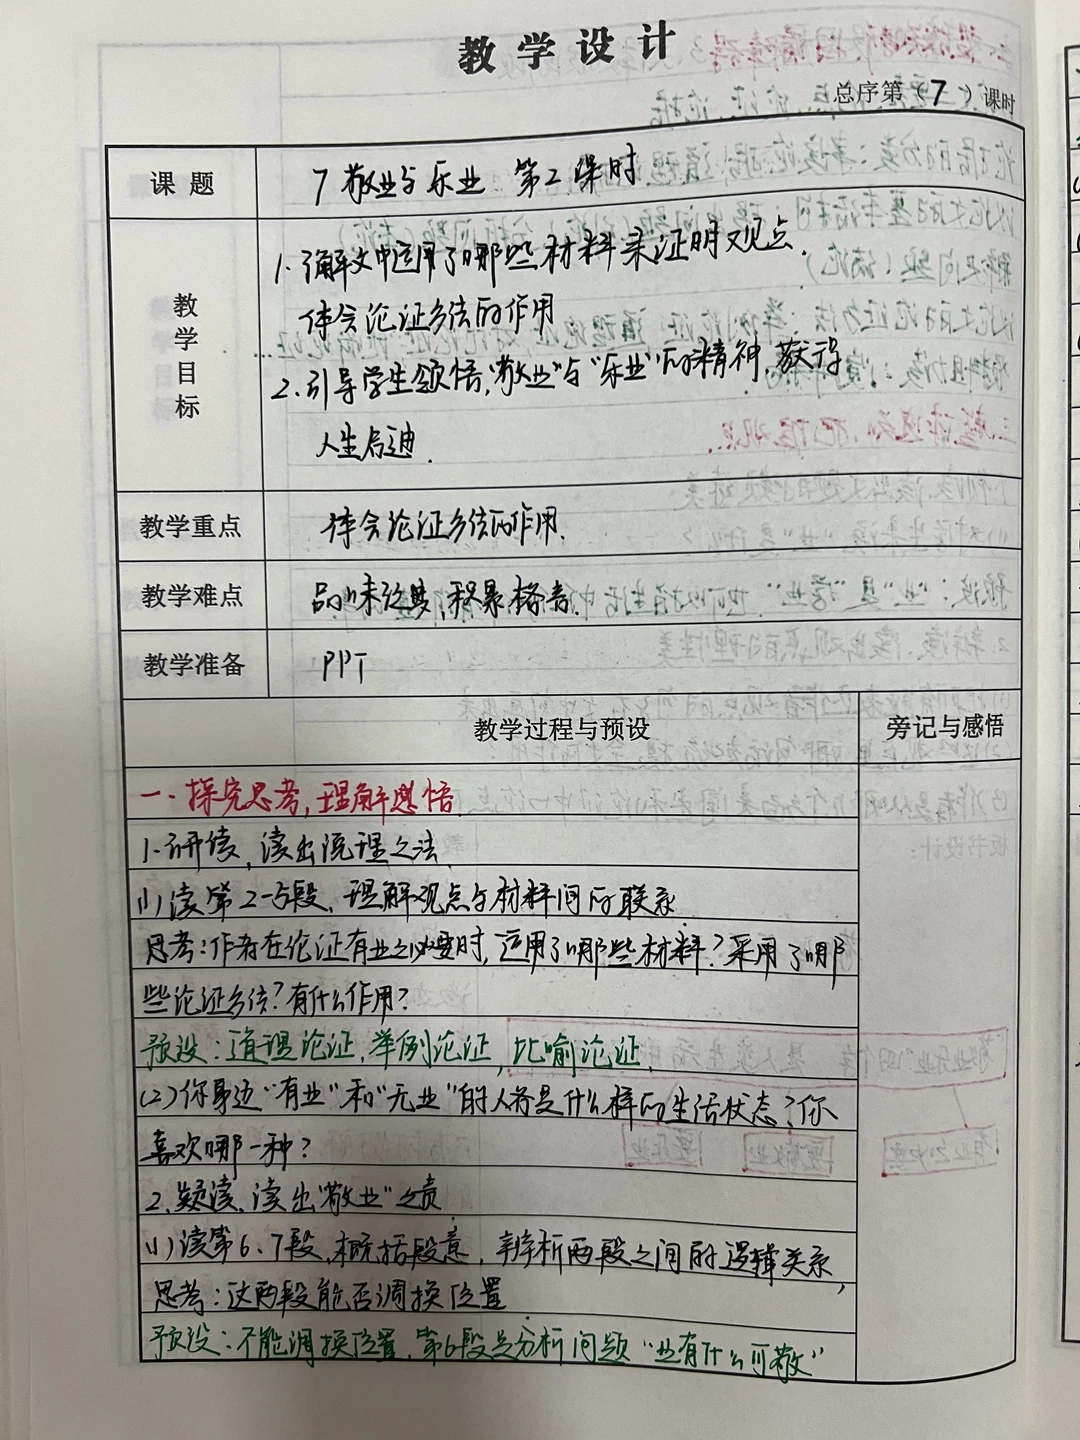 教学设计
总序第（7）课时
课题
7 敬业与乐业 第2课时
教学目标
1.了解文中运用了哪些材料来证明观点.
体会论证方法的作用
2.引导学生领悟"敬业"与"乐业"的精神,获得
人生启迪.
教学重点
体会论证方法的作用.
教学难点
品味经典,积累格言.
教学准备
PPT
教学过程与预设
旁记与感悟
一.探究思考,理解感悟.
1.研读,读出说理之法.
(1)读第2-5段,理解观点与材料间的联系
思考:作者在论证有业之必要时,运用了哪些材料?采用了哪
些论证方法?有什么作用?
预设:道理论证,举例论证,比喻论证.
(2)你身边"有业"和"无业"的人各是什么样的生活状态?你
喜欢哪一种?
2.疑读,读出"敬业"之责
(1)读第6、7段,概括段意,辨析两段之间的逻辑关系,
思考:这两段能否调换位置
预设:不能调换位置,第6段是分析问题"业有什么可敬"